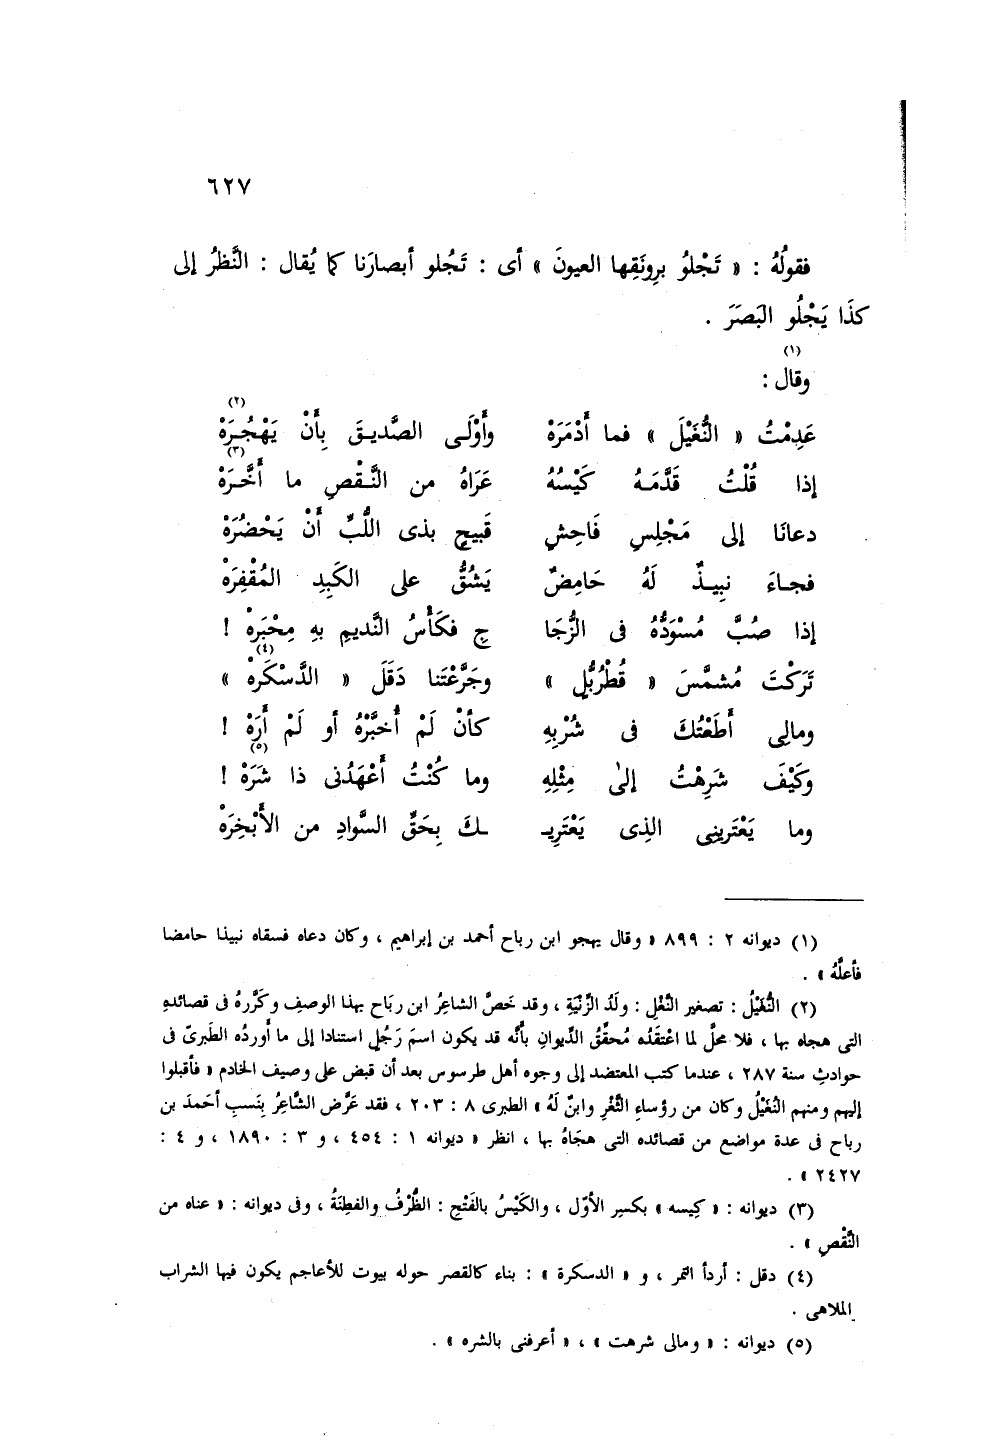 ٦٢٧
فقولُهُ : « تَجْلوُ برونَقِها العيونَ » أى : تَجُلو أبصارَنا كما يُقال : النَّظرُ إلى
كذَا يَجْلُو البَصَرَ .
(١)
وقال :
(٢)
عَدِمْتُ « النُّغَيْلَ » فما أَدْمَرَهْ وأَوْلَـى الصَّديـقَ بِأَنْ يَهْجُـرَهْ
(٣)
إذا قُلْتُ قَدَّمَـهُ كَيْسُهُ عَرَاهُ من النَّـقْصِ ما أَخَّـرَهْ
دعانَا إلى مَجْلِسٍ فَاحِشٍ قَبيحٍ بذى اللُّبِّ أَنْ يَحْضُرَهْ
فجـاءَ نبِيـذٌ لَهُ حَامِضٌ يَشُقُّ على الكَبِدِ المُقْفِرَهْ
إذا صُبَّ مُسْوَدُّهُ فى الزُّجَا جِ فكَأْسُ النَّديمِ بهِ مِحْبَرهْ !
(٤)
تَرَكْتَ مُشمَّسَ « قُطْرُبُّلٍ » وجَرَّعْتَنا دَقَلَ « الدَّسْكَرهْ »
ومالِى أَطَعْتُكَ فى شُرْبِهِ كأنْ لَمْ أُخبَّرْهُ أو لَمْ أَرَهْ !
(٥)
وكَيْفَ شَرِهْتُ إلىٰ مِثْلِهِ وما كُنْتُ أَعْهَدُنى ذا شَرَهْ !
وما يَعْتَرينِى الذِى يَعْتَرِيـ ـكَ بِحَقِّ السَّوادِ من الأَبْخِرَهْ
(١) ديوانه ٢ : ٨٩٩ « وقال يهجو ابن رباح أحمد بن إبراهيم ، وكان دعاه فسقاه نبيذا حامضا
فأعلَّهُ » .
(٢) النُّغَيْلُ : تصغير النَّغْلِ : ولَدُ الزَّنْيَةِ ، وقد خَصَّ الشاعِرُ ابن ربَاح بهذا الوصفِ وكَرَّرهُ فى قصائدهِ
التى هجاه بها ، فلا محلَّ لما اعْتقَدُه مُحقّقُ الدِّيوانِ بأنَّه قد يكون اسمَ رَجُلٍ استنادا إلى ما أورَدُه الطَبرىّ فى
حوادثِ سنة ٢٨٧ ، عندما كتب المعتضد إلى وجوه أهل طرسوس بعد أن قبض على وصيف الخادم « فأقبلوا
إليهم ومنهم النُغَيْلُ وكان من رؤساءِ الثَّغْرِ وابنٌ لَهُ » الطبرى ٨ : ٢٠٣ ، فقد عَرَّض الشَّاعِرُ بِنَسبِ أحَمدَ بن
رباح فى عدة مواضع من قصائده التى هجَاهُ بها ، انظر « ديوانه ١ : ٤٥٤ ، و ٣ : ١٨٩٠ ، و ٤ :
٢٤٢٧ » .
(٣) ديوانه : « كِيسه » بكسرِ الأوّل ، والكَيْسُ بالفَتْحِ : الظُّرْفُ والفطِنَةُ ، وفى ديوانه : « عناه من
النَّقْصِ » .
(٤) دقل : أردأ التمر ، و « الدسكرة » : بناء كالقصر حوله بيوت للأعاجم يكون فيها الشراب
والملاهى .
(٥) ديوانه : « ومالى شرهت » ، « أعرفنى بالشره » .